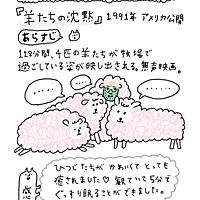 『羊たちの沈黙』1991年 アメリカ公開
あらすじ
118分間、牛匹の羊たちが牧場で
過ごしている姿が映し出される。無声映画。
……
……
……
……
ひつじたちが かわいくて とっても
癒されました♡ 観ていて5分で
ぐっすり眠ることができました。
感想